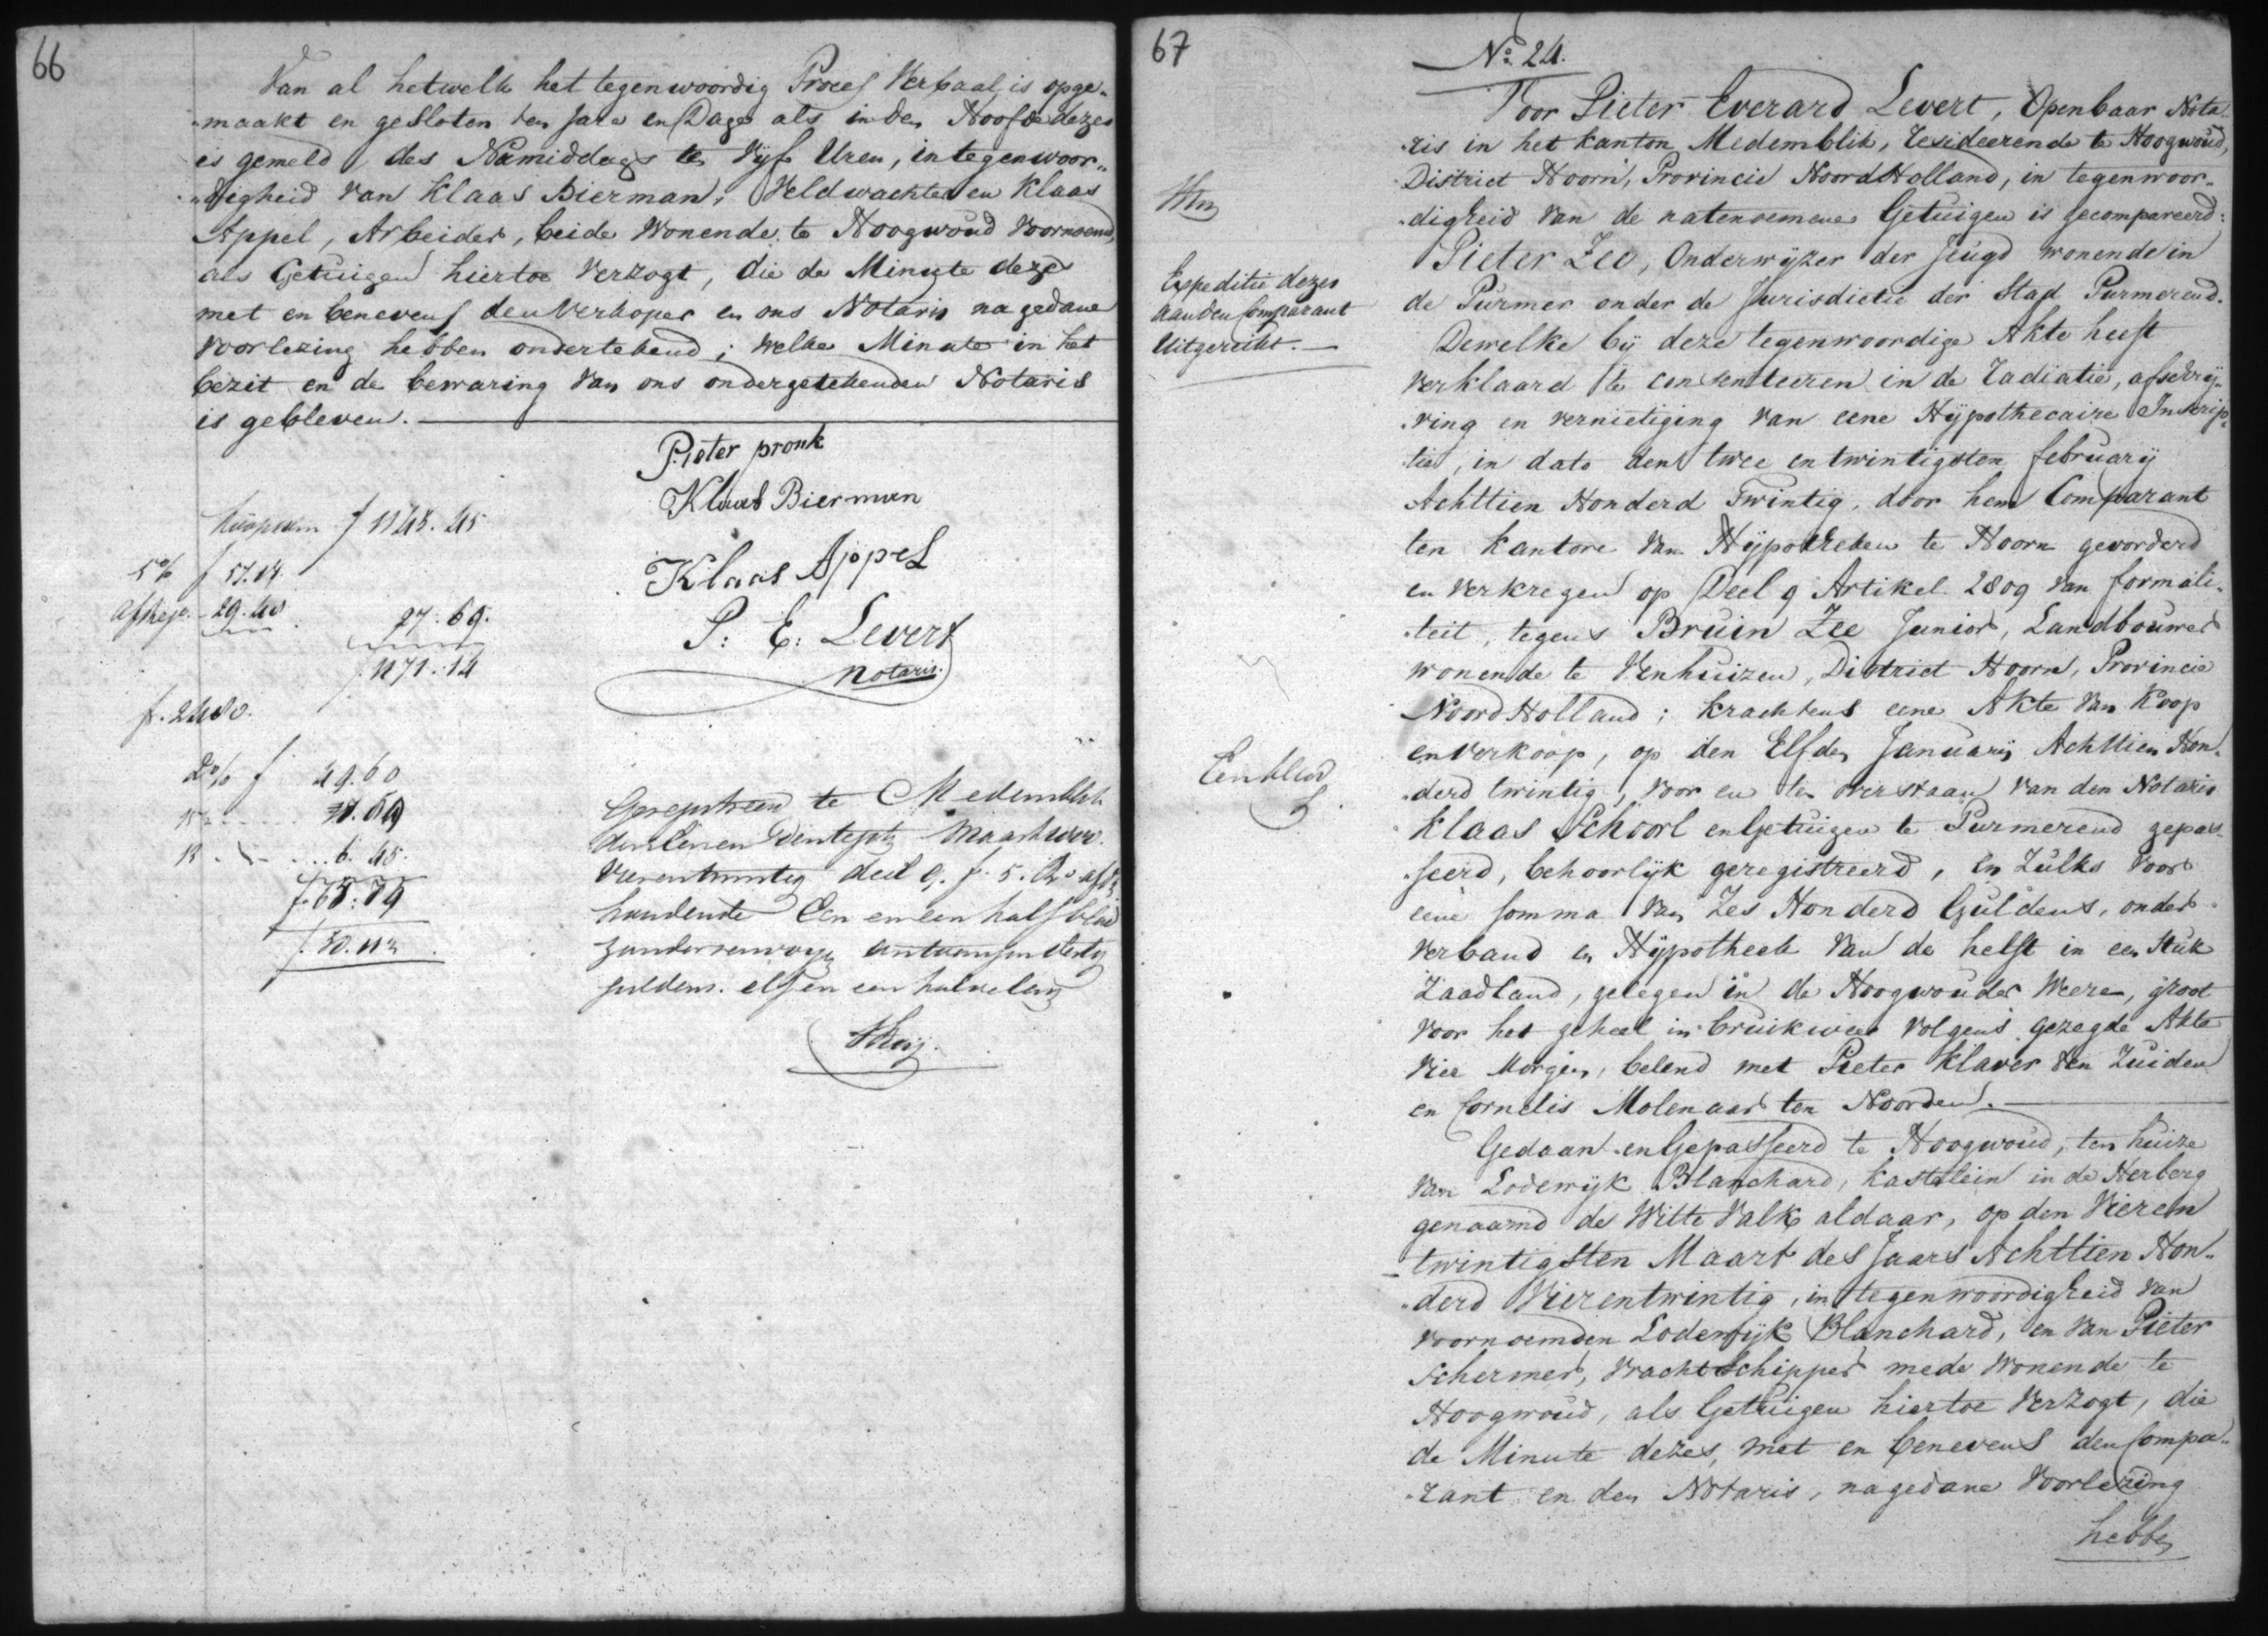 66
Van al hetwelk het tegenwoordig Proces Verbaal is opge„
„maakt en gesloten ten Jare en Dage als in den Hoofde dezes
is gemeld, des Namiddags te Vijf Uren, in tegenwoor„
„digheid van Klaas Bierman, Veldwachter en Klaas
Appel, Arbeider, beide Wonende te Hoogwoud voornoemd,
als Getuigen hiertoe Verzogt, die de Minute dezes
met en benevens den Verkoper en ons Notaris na gedane
Voorlezing hebben ondertekend; welke Minute in het
bezit en de bewaring van ons ondergetekenden Notaris
is gebleven.
Pieter pronk
Klaas Bierman
Klaas Appel
P: E: Levert
Notaris.
f 1143.45
5% f 57.14
29.40
27.69.
1171.14
f. 2480.
2% f 49.60
6.45.
Geregistreerd te Medemblik
Vierentwintig deel 9. f. 5.
houdende Een en een half blad
guldens. elf en een halve cent
67
No. 24.
Voor Pieter Everard Levert, Openbaar Nota„
„ris in het Kanton Medemblik, resideerende te Hoogwoud,
District Hoorn, Provincie Noord Holland, in tegenwoor„
„digheid van de natenoemene Getuigen is gecompareerd:
Pieter Zee, Onderwijzer der Jeugd wonende in
de Purmer onder de Jurisdictie der Stad Purmerend.
Dewelke bij deze tegenwoordige Akte heeft
verklaard te consenteeren in de radiatie, afschrij„
„ving en vernietiging van eene Hypothecaire Inskrip„
„tie, in dato den twee en twintigsten february
Achttien Honderd Twintig, door hem Comparant
ten Kantore van Hypotheken te Hoorn gevorderd
en verkregen op Deel 9 Artikel 2809 van formali„
„teit, tegens Bruin Zee Junior, Landbouwer
wonende te Venhuizen, District Hoorn, Provincie
Noord Holland; krachtens eene Akte van Koop
en Verkoop, op den Elfden January Achttien Hon„
„derd twintig, voor en ten overstaan van den Notaris
Klaas Schoorl en Getuigen te Purmerend gepas„
„seerd, behoorlijk geregistreerd, en Zulks voor
eene somma van Zes Honderd Guldens, onder
verband en Hypotheek van de helft in een Stuk
Zaadland, gelegen in de Hoogwouder Weere, groot
voor het geheel in bruikwear volgens gezegde Akte
Vier Morgen, belend met Pieter Klaver ten Zuiden
en Cornelis Molenaar ten Noorden.
Gedaan en Gepasseerd te Hoogwoud, ten huize
van Lodewijk Blanchard, Kastelein in de Herberg
genaamd de Witte Valk aldaar, op den Vieren
twintigsten Maart des Jaars Achttien Hon„
„derd Vierentwintig, in tegenwoordigheid van
voornoemden Lodewijk Blanchard, en van Pieter
Schermer, Vracht Schipper mede Wonende te
Hoogwoud, als Getuigen hiertoe Verzogt, die
de Minute dezes, met en benevens den Compa„
„rant en den Notaris, na gedane Voorlezing
hebben
Expeditie dezes
aan den Comparant
Uitgereikt.
Een blad